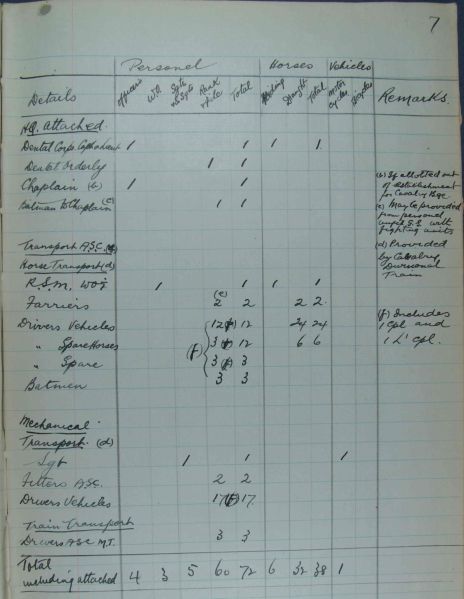 7
Personel Horses Vehicles
Details Officers W.O. Sgts & S/Sgts Rank & file Total Riding Draught Total Motor cycles Bicycles Remarks.
HQ. Attached.
Dental Corps. 1 1 1 1
Dental Orderly 1 1
Chaplain (b) 1 1
Batman to Chaplain (c) 1 1
(b) If allotted out
of Establishment
for Cavalry Bge
(c) May be provided
from personnel
unfit S.S. with
fighting units
(d) Provided
by Cavalry
Divisional
Train
(f) Includes
1 Cpl and
1 L' Cpl.
Transport A.S.C.
Horse Transport (d)
R.S.M. WO1 1 1 1 1
Farriers (e) 2 2 2 2
Drivers Vehicles 12 (f) 12 24 24
" Spare Horses (f) 3 (f) 12 6 6
" Spare 3 (f) 3
Batmen 3 3
Mechanical
Transport (d)
Sgt 1 1 1
Fitters A.S.C. 2 2
Drivers Vehicles 17 (f) 17
Train Transport
Drivers ASC M.T. 3 3
Total
including attached 4 3 5 60 72 6 32 38 1